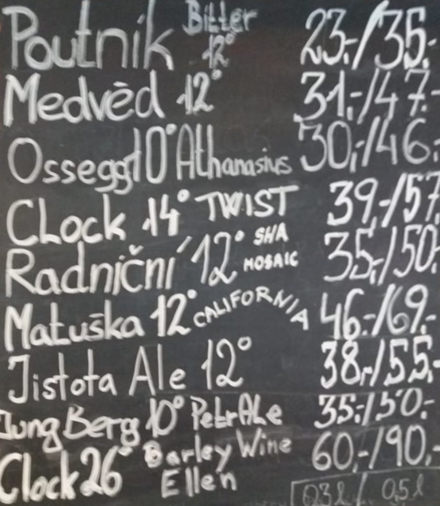 Poutník Bitter 12° 23,-/35,-
Medvěd 12° 31,-/47,-
Ossegg 10° Athanasius 30,-/46,-
CLock 14° TWIST 39,-/57
Radniční 12° SHA MOSAIC 35,-/50,-
Matuška 12° CALIFORNIA 46,-/69,-
Jistota Ale 12° 38,-/55,-
JungBerg 10° PetrAle 35,-/50,-
Clock 26° Barley Wine Ellen 60,-/90,-
0,3l / 0,5l